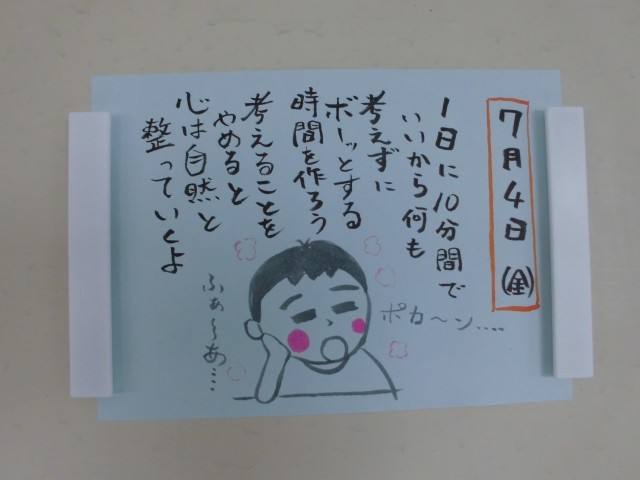 7月4日(金)
1日に10分間で
いいから何も
考えずに
ボーッとする
時間を作ろう
考えることを
やめると
心は自然と
整っていくよ
ポカ〜ン....
ふぁ〜あ...